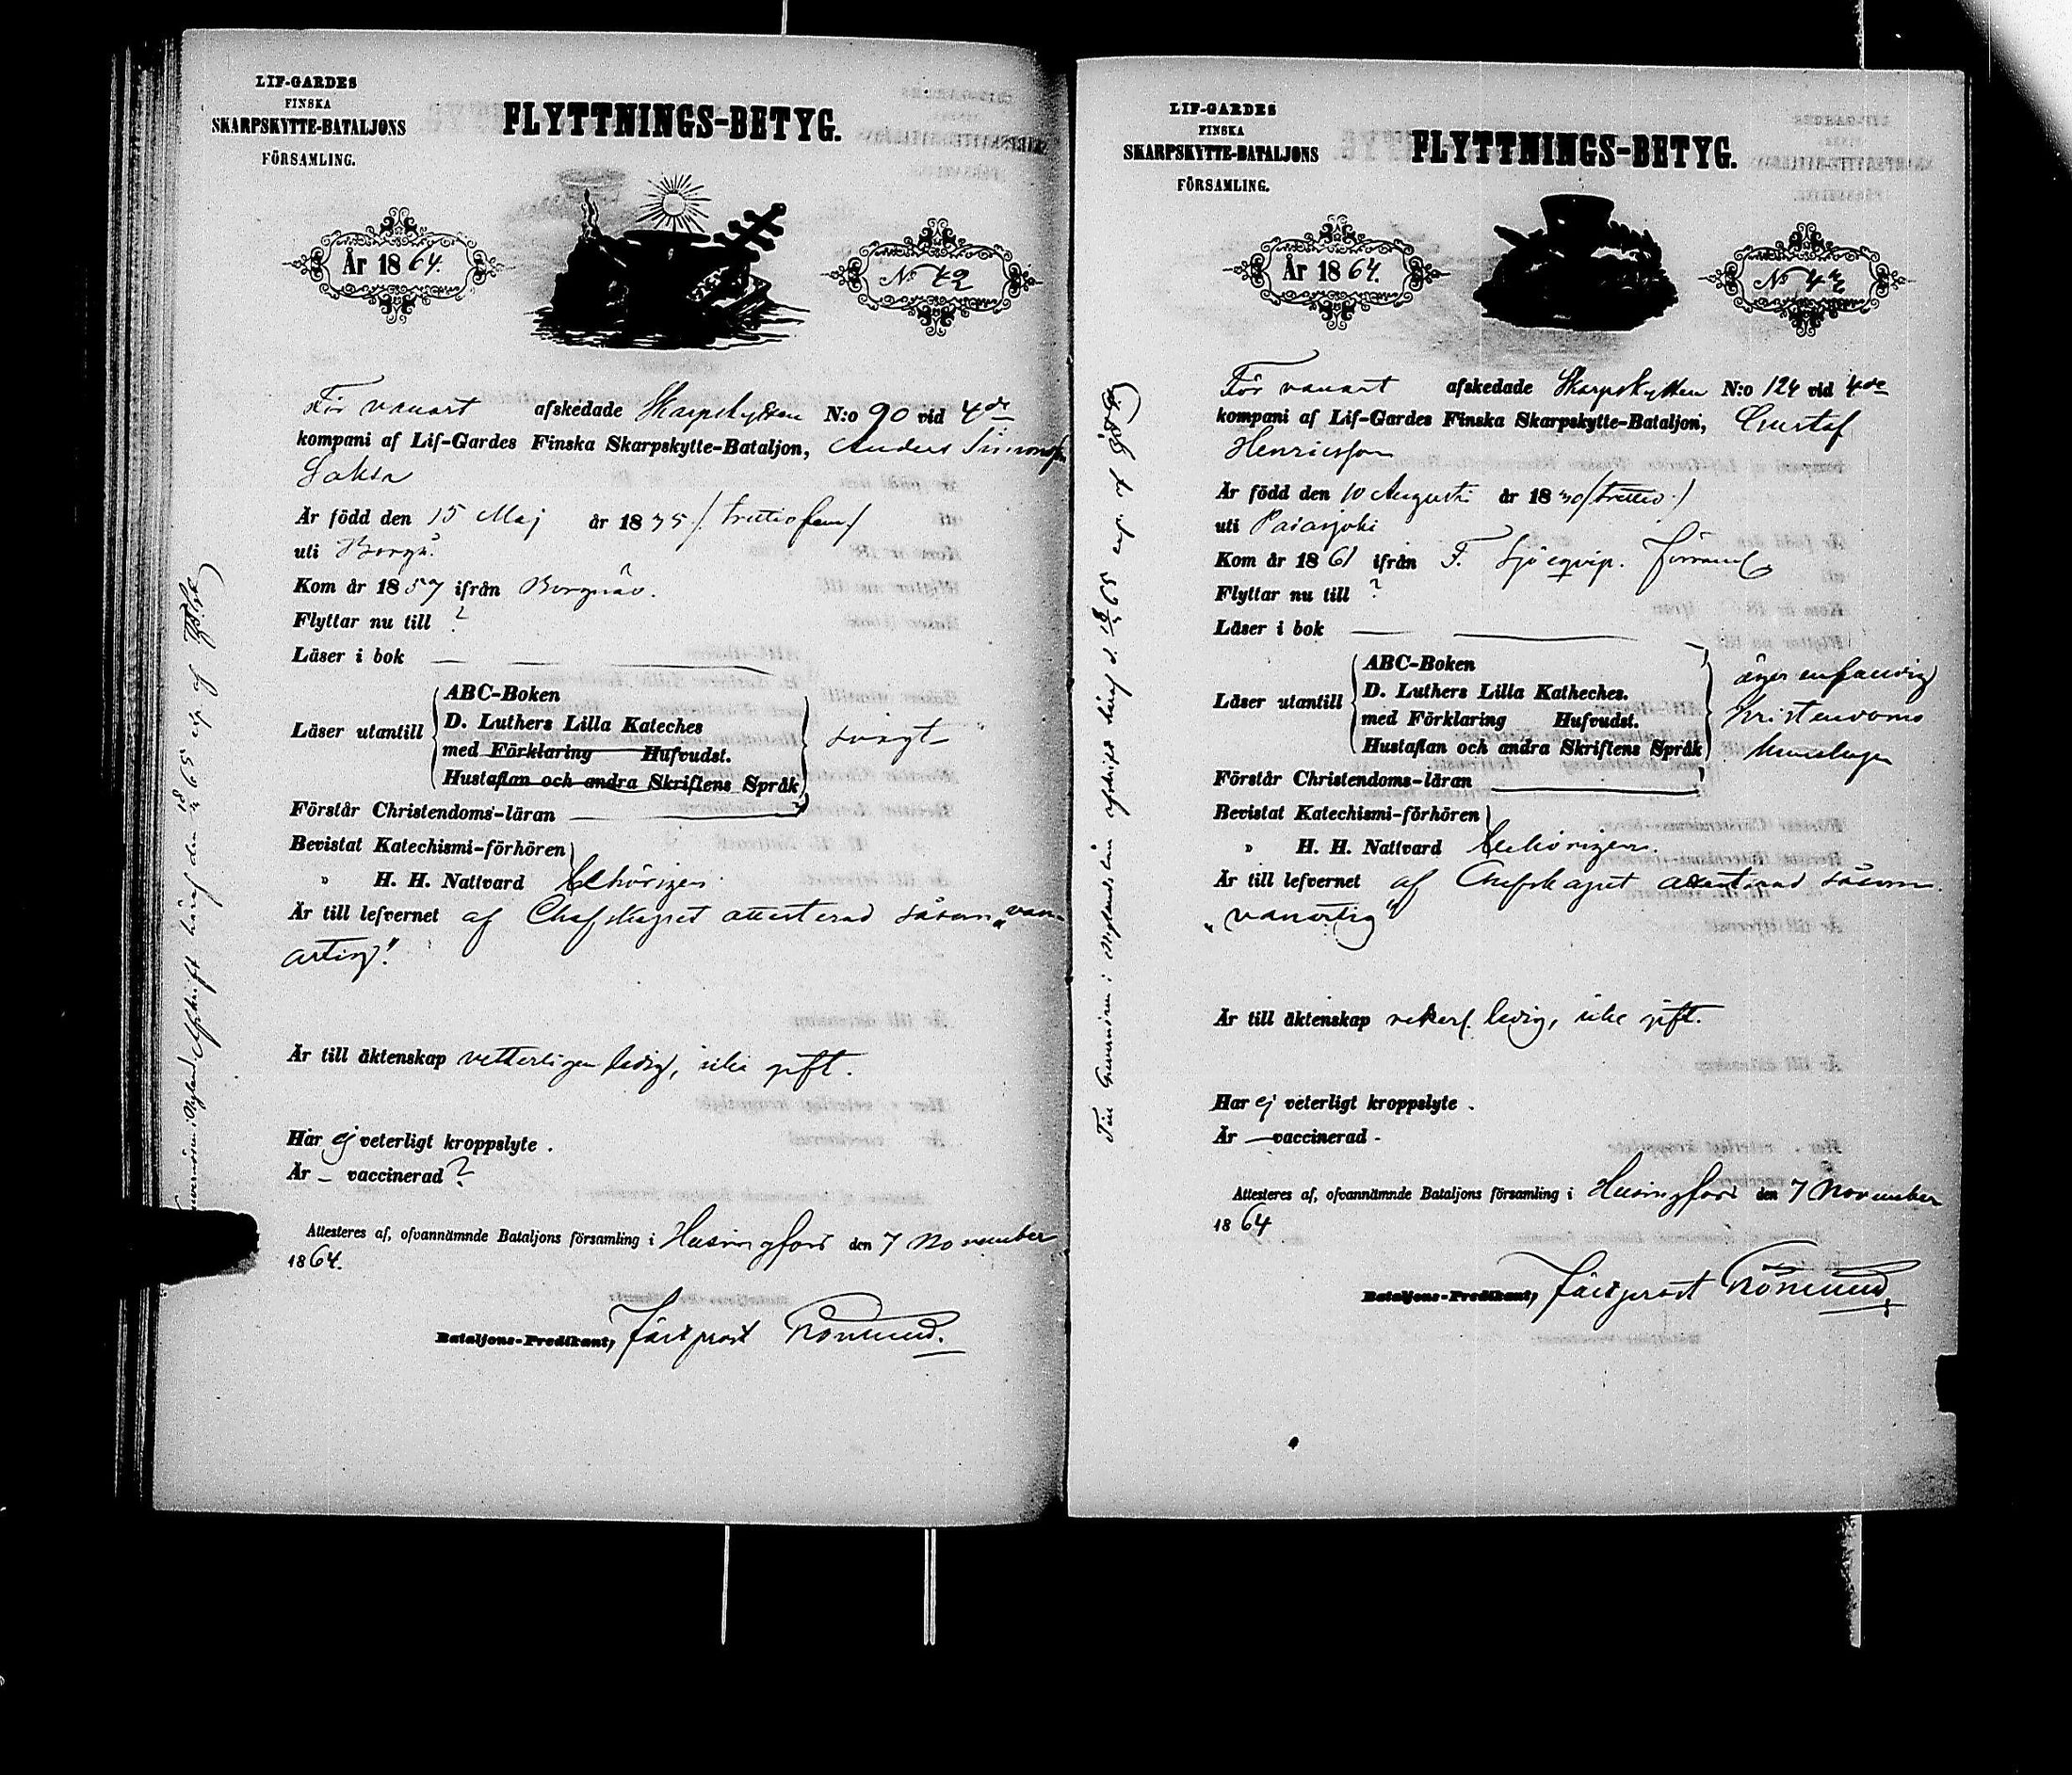 LIF-GARDES
FINSKA
SKARPSKYTTE-BATALJONS
FÖRSAMLING.
FLYTTNINGS-BETYG.
År 1864.
No 42
För vanart afskedade Skarpskytten N:o 90 vid 4de
kompani af Lif-Gardes Finska Skarpskytte-Bataljon, Anders Simonsson
Saksa
Är född den 15 Maj år 1835 /: trettiofem :/
uti Borgå.
Kom år 1857 ifrån Borgnäs.
Flyttar nu till ?
Läser i bok
Läser utantill
ABC-Boken
D. Luthers Lilla Kateches
med Förklaring Hufvudst.
Hustaflan och andra Skriftens Språk
svagt
Förstår Christendoms-läran
Bevistat Katechismi-förhören
" H. H. Nattvard behörigen.
Är till lefvernet af Chefskapet attesterad såsom „van-
artig".
Är till äktenskap vetterligen ledig, icke gift.
Har ej veterligt kroppslyte.
Är – vaccinerad ?
Attesteres af, ofvannämnde Bataljons församling i Helsingfors den 7 November
1864.
Bataljons-Predikant, Fältprost
Guvernören i Nyland Afskrift häraf den 65 exp. af
LIF-GARDES
FINSKA
SKARPSKYTTE-BATALJONS
FÖRSAMLING.
FLYTTNINGS-BETYG.
År 1864.
No 43
För vanart afskedade Skarpskytten N:o 124 vid 4de
kompani af Lif-Gardes Finska Skarpskytte-Bataljon, Gustaf
Henricsson
Är född den 10 Augusti år 1830 /: trettio :/
uti
Kom år 1861 ifrån F. Sjöeqvip. Församl
Flyttar nu till ?
Läser i bok
Läser utantill
ABC-Boken
D. Luthers Lilla Katheches.
med Förklaring Hufvudst.
Hustaflan och andra Skriftens Språk
äger enfaldig
Kristendoms
kunskap
Förstår Christendoms-läran
Bevistat Katechismi-förhören
" H. H. Nattvard behörigen.
Är till lefvernet af Chefskapet attesterad såsom
„vanartig"
Är till äktenskap veterl. ledig, icke gift.
Har ej veterligt kroppslyte.
Är — vaccinerad -
Attesteres af, ofvannämnde Bataljons församling i Helsingfors den 7 November
1864
Bataljons-Predikant, Fältprost
Till Guvernören i Nylands län afskrift häraf d. 65 exp. af